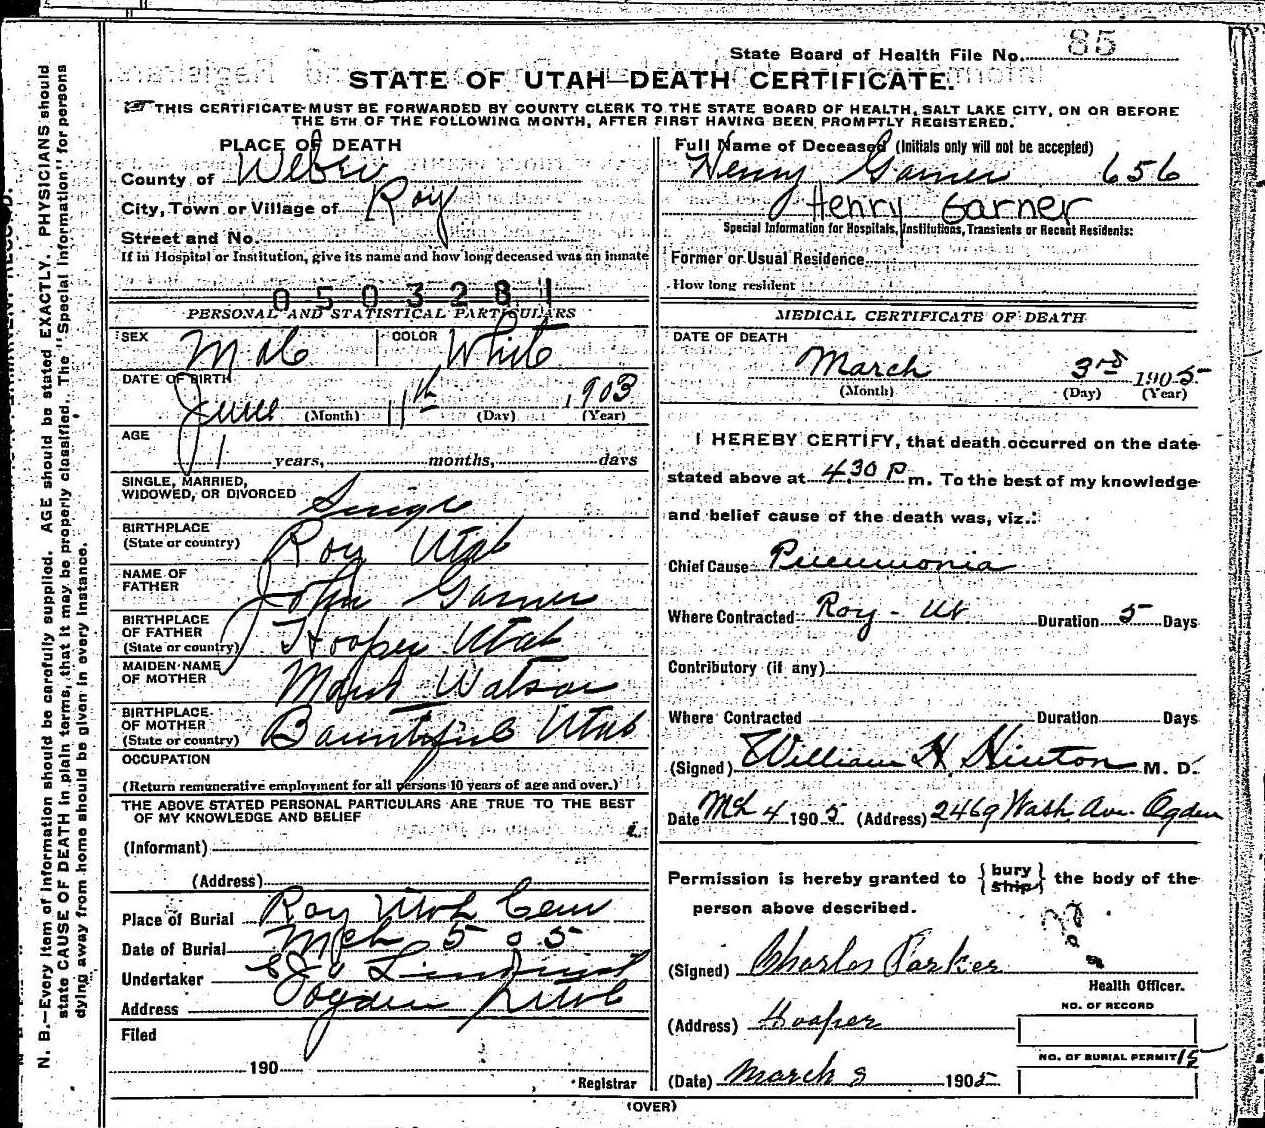 State Board of Health File No. 85
STATE OF UTAH—DEATH CERTIFICATE.
THIS CERTIFICATE MUST BE FORWARDED BY COUNTY CLERK TO THE STATE BOARD OF HEALTH, SALT LAKE CITY, ON OR BEFORE
THE 5TH OF THE FOLLOWING MONTH, AFTER FIRST HAVING BEEN PROMPTLY REGISTERED.
PLACE OF DEATH
County of Weber
City, Town or Village of Roy
Street and No.
If in Hospital or Institution, give its name and how long deceased was an inmate
0503281
PERSONAL AND STATISTICAL PARTICULARS
SEX Male COLOR White
DATE OF BIRTH
June (Month) 11th (Day) 1903 (Year)
AGE
1 years, months, days
SINGLE, MARRIED,
WIDOWED, OR DIVORCED Single
BIRTHPLACE
(State or country) Roy Utah
NAME OF
FATHER John Garner
BIRTHPLACE
OF FATHER
(State or country) Hooper Utah
MAIDEN NAME
OF MOTHER Watson
BIRTHPLACE
OF MOTHER
(State or country) Bountiful Utah
OCCUPATION
(Return remunerative employment for all persons 10 years of age and over.)
THE ABOVE STATED PERSONAL PARTICULARS ARE TRUE TO THE BEST
OF MY KNOWLEDGE AND BELIEF
(Informant)
(Address)
Place of Burial Roy Utah Cem
Date of Burial Mch 5 05
Undertaker Lindquist
Address Ogden Utah
Filed
190
Registrar
Full Name of Deceased (Initials only will not be accepted)
Henry Garner 656
Henry Garner
Special Information for Hospitals, Institutions, Transients or Recent Residents:
Former or Usual Residence
How long resident
MEDICAL CERTIFICATE OF DEATH
DATE OF DEATH
March 3rd 1905
(Month) (Day) (Year)
I HEREBY CERTIFY, that death occurred on the date
stated above at 4.30 P m. To the best of my knowledge
and belief cause of the death was, viz.:
Chief Cause Pneumonia
Where Contracted Roy - Ut Duration 5 Days
Contributory (if any)
Where Contracted Duration Days
(Signed) William H. Hinton M. D.
Date Mch 4 1905. (Address) 2469 Wash Ave. Ogden
Permission is hereby granted to {bury ship} the body of the
person above described.
(Signed) Charles Parker
Health Officer.
(Address) Hooper
NO. OF RECORD
NO. OF BURIAL PERMIT 15
(Date) March 8 1905
(OVER)
N. B.—Every item of information should be carefully supplied. AGE should be stated EXACTLY. PHYSICIANS should
state CAUSE OF DEATH in plain terms, that it may be properly classified. The "Special Information" for persons
dying away from home should be given in every instance.